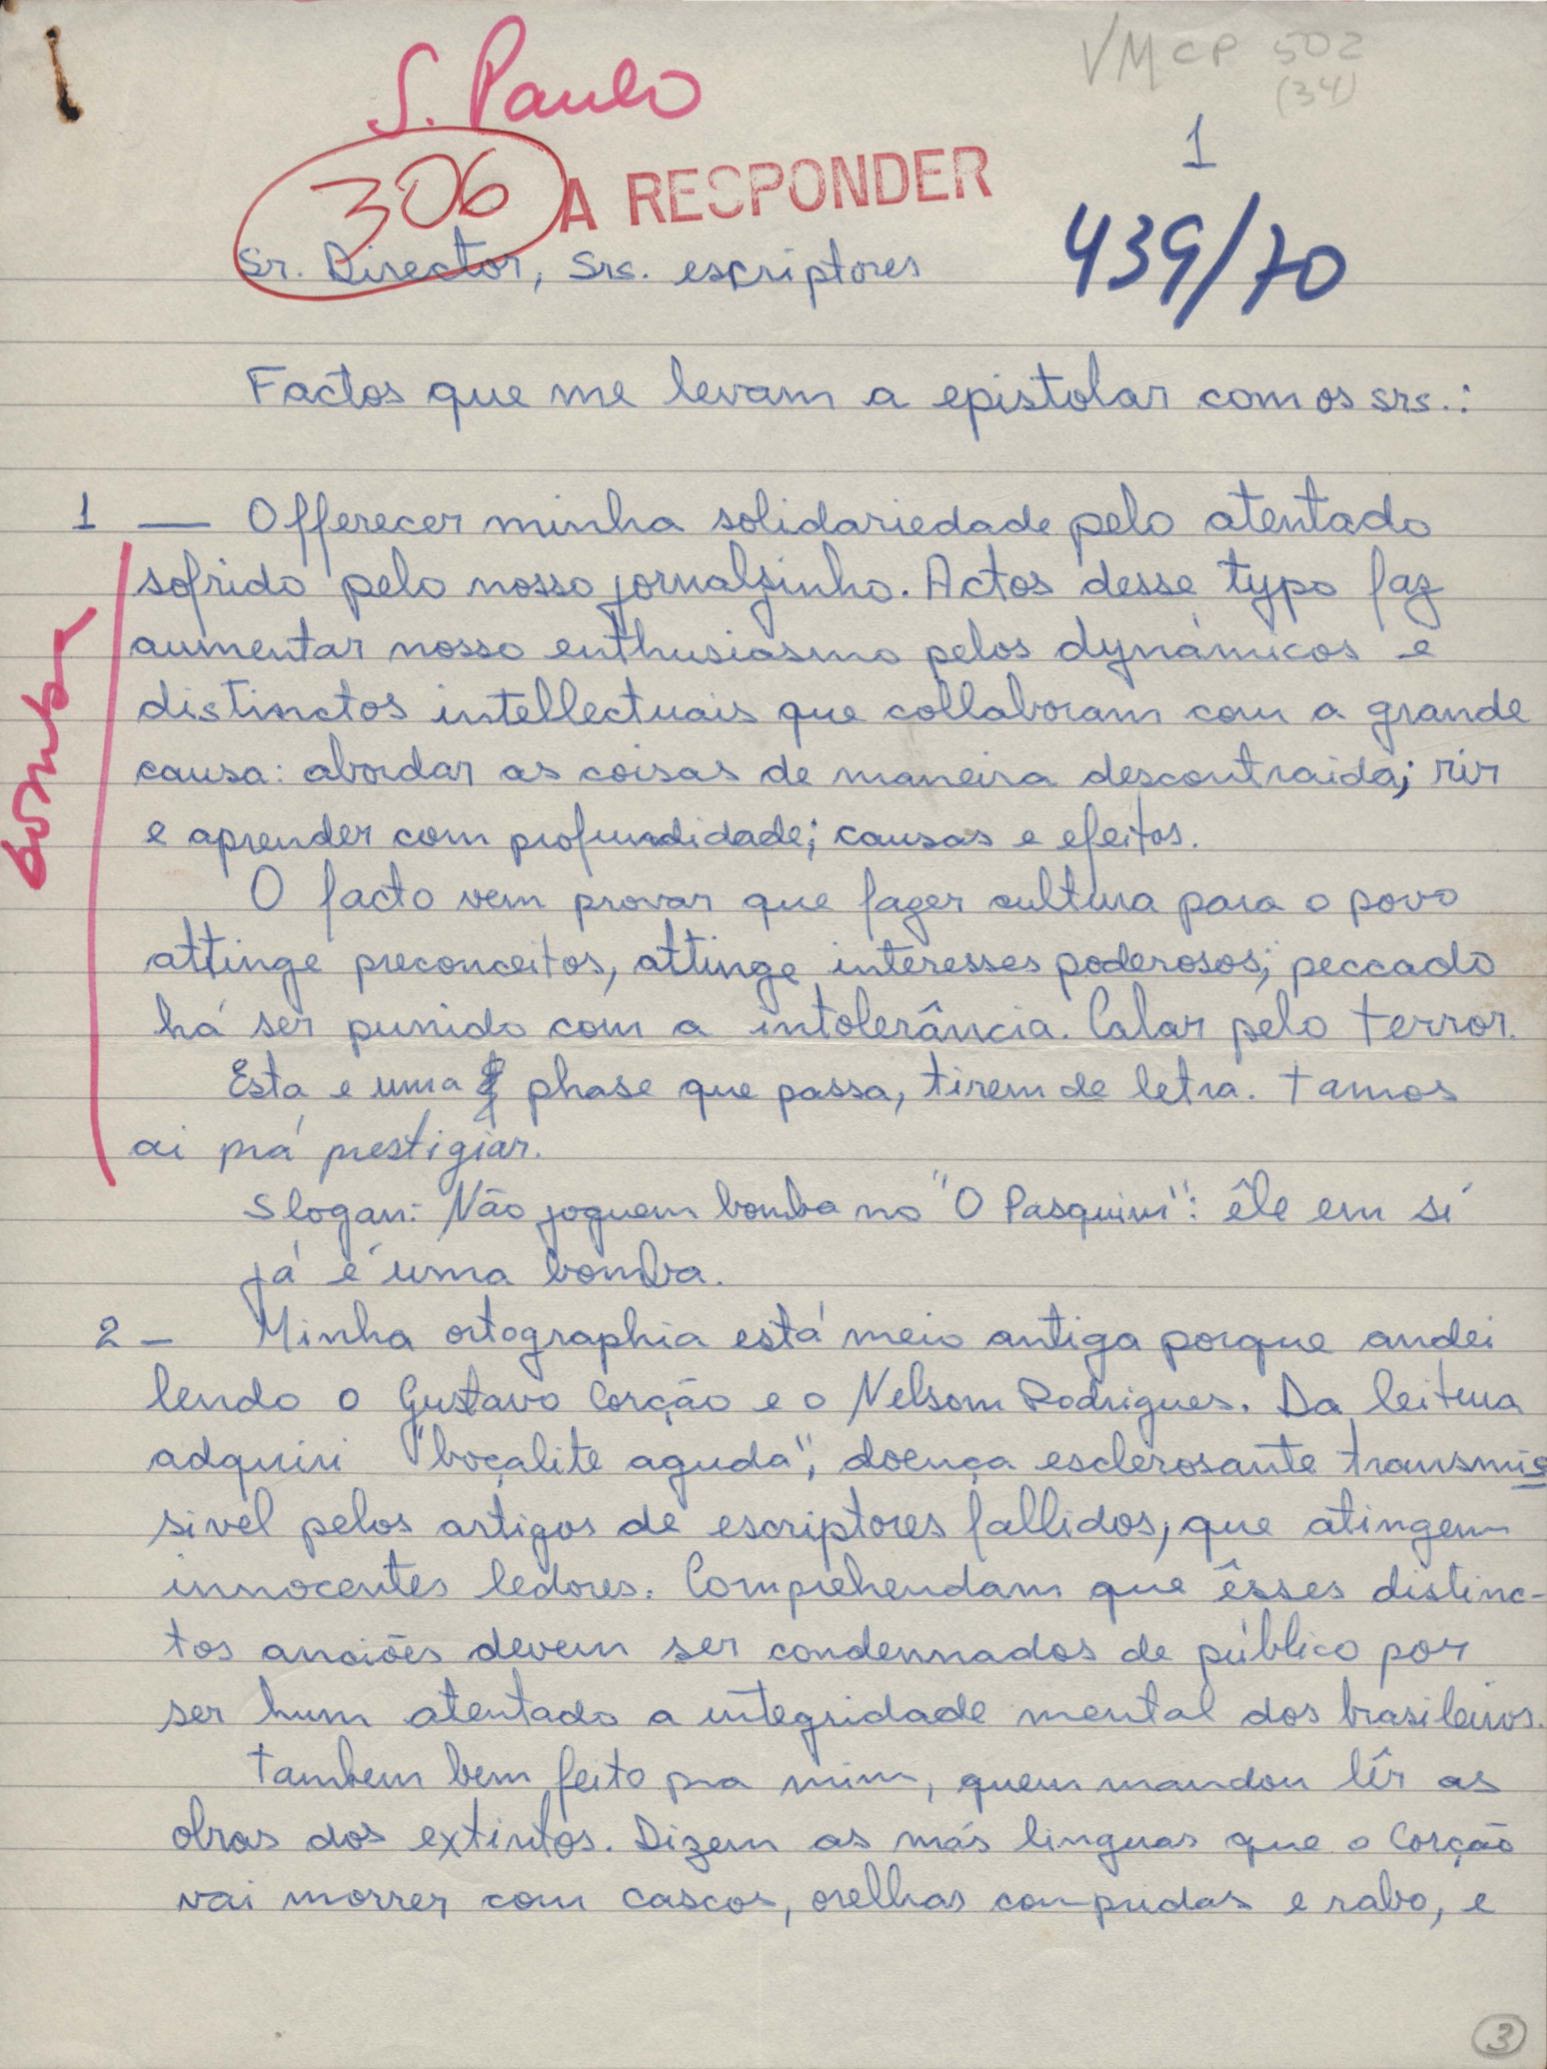 S. Paulo
VMCP 502
(34)
1
306
A RESPONDER
439/70
Sr. Director, Srs. escriptores
Factos que me levam a epistolar com os srs.:
1 — Offerecer minha solidariedade pelo atentado
sofrido pelo nosso jornalzinho. Actos desse typo faz
aumentar nosso enthusiasmo pelos dynámicos e
distinctos intellectuais que collaboram com a grande
causa: abordar as coisas de maneira descontraida; rir
e aprender com profundidade; causas e efeitos.
bomba
O facto vem provar que fazer cultura para o povo
attinge preconceitos, attinge interesses poderosos; peccado
há ser punido com a intolerância. Calar pelo terror.
Esta e uma phase que passa, tirem de letra. Tamos
ai prá prestigiar.
Slogan: Não joguem bomba no "O Pasquim": êle em sí
já é uma bomba.
2 — Minha ortographia está meio antiga porque andei
lendo o Gustavo Corção e o Nelsom Rodrigues. Da leitura
adquiri "boçalite aguda", doença esclerosante transmis
sivel pelos artigos de escriptores fallidos, que atingem
innocentes ledores. Comprehendam que êsses distinc-
tos anciões devem ser condemnados de público por
ser hum atentado a integridade mental dos brasileiros.
Tambem bem feito pra mim, quem mandou lêr as
obras dos extintos. Dizem as más linguas que o Corção
vai morrer com cascos, orelhas compridas e rabo, e
3